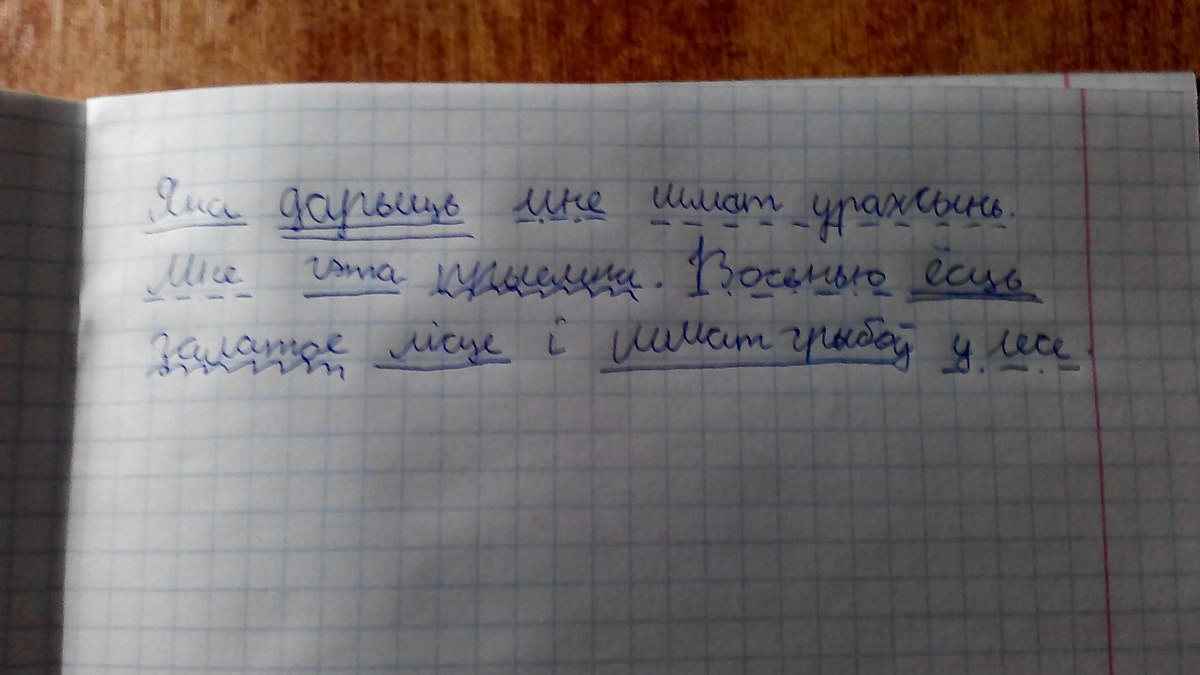 Яна дарыць мне шмат уражынь.
Мне гэта прыемна. Восенью ёсць
залатое лісце і шмат грыбоў у лесе.